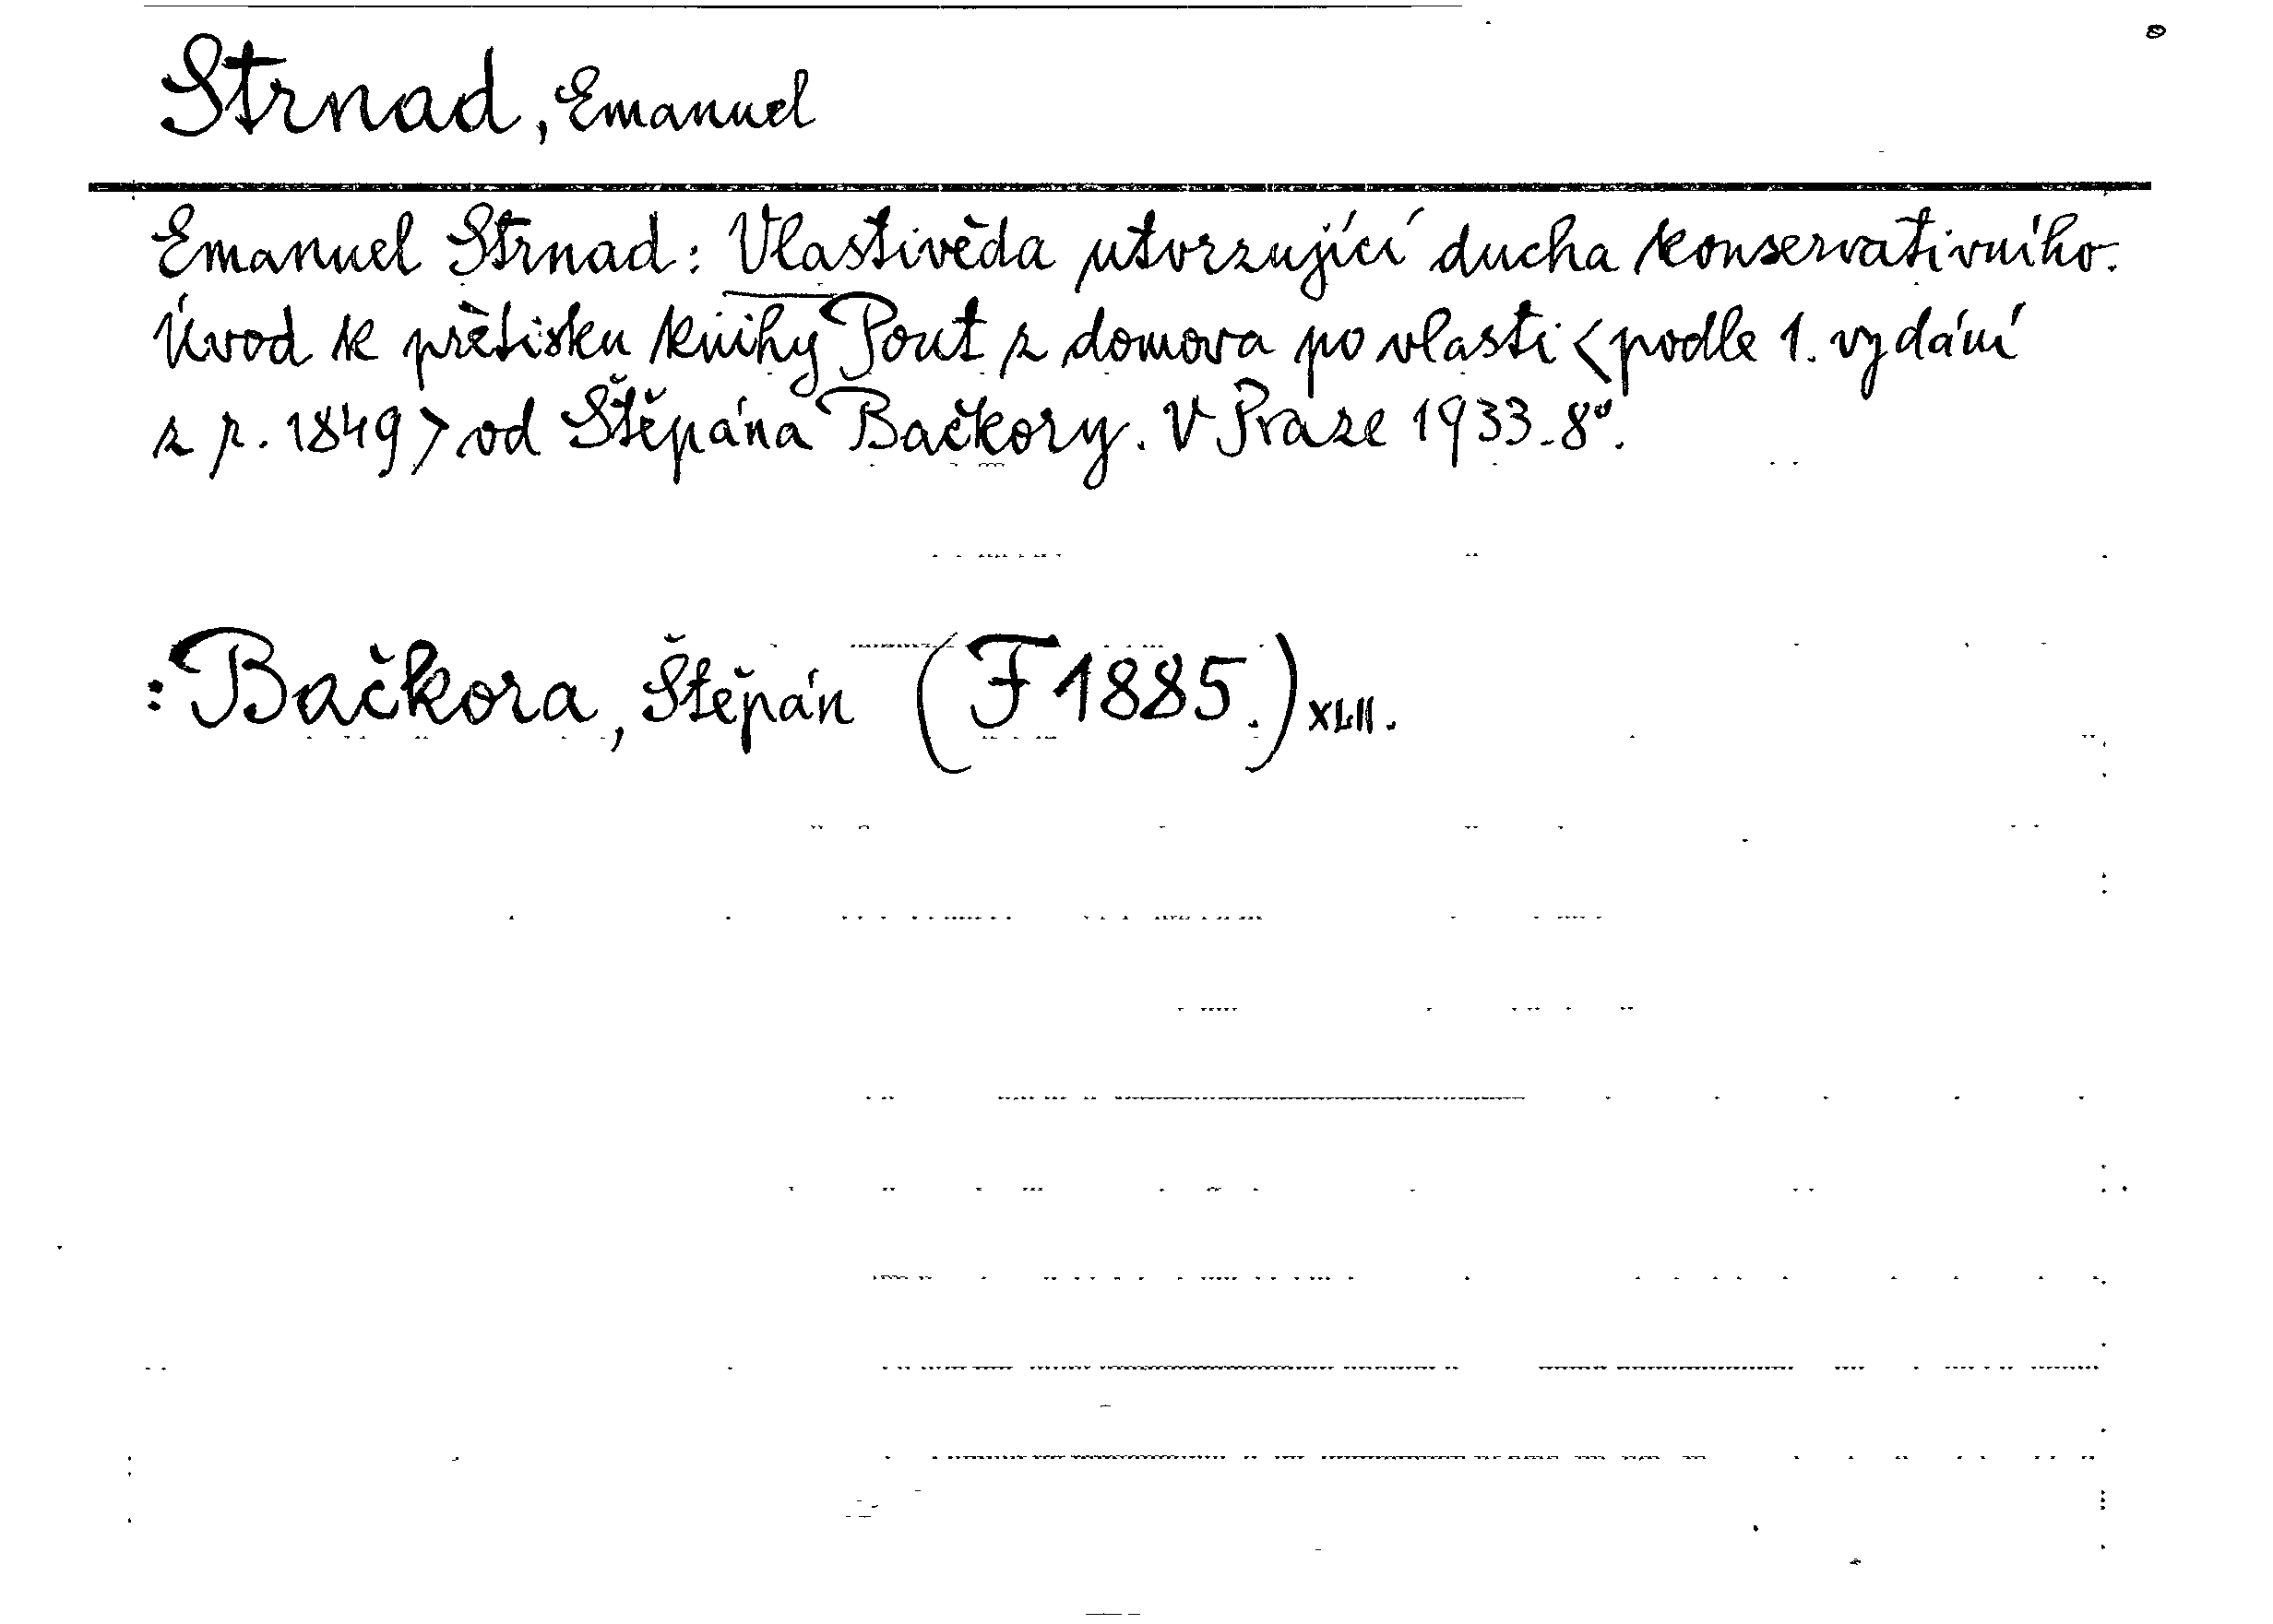 Strnad, Emanuel
Emanuel Strnad: Vlastivěda utvrzující ducha konservativního.
Úvod k přetisku knihy Pouť z domova po vlasti <podle 1. vydání
z r. 1849> od Štěpána Bačkory. V Praze 1933. 8°.
: Bačkora, Štěpán (F 1885.) XLII.